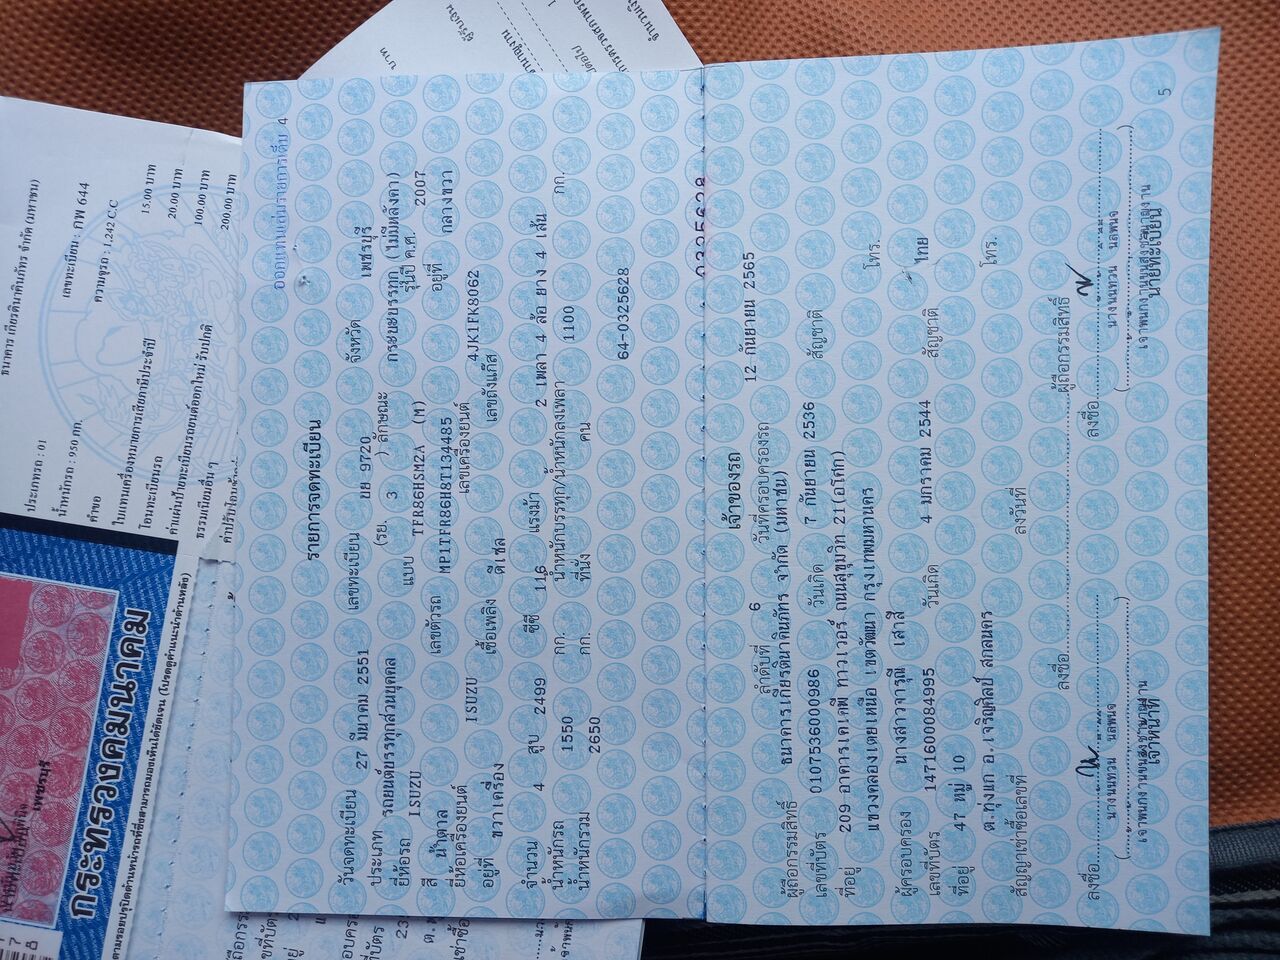 ออกแทนเล่มรายการเต็ม 4
รายการจดทะเบียน
วันจดทะเบียน 27 มีนาคม 2551 เลขทะเบียน ยย 9720 จังหวัด เพชรบุรี
ประเภท รถยนต์บรรทุกส่วนบุคคล (รย. 3 ) ลักษณะ กระบะบรรทุก (ไม่มีหลังคา)
ยี่ห้อรถ ISUZU แบบ TFR86HSMZA (M) รุ่นปี ค.ศ. 2007
สี น้ำตาล เลขตัวรถ MP1TFR86H8T134485 อยู่ที่ กลางขวา
ยี่ห้อเครื่องยนต์ ISUZU เลขเครื่องยนต์ 4JK1FK8062
อยู่ที่ ขวาเครื่อง เชื้อเพลิง ดีเซล เลขถังแก๊ส
จำนวน 4 สูบ 2499 ซีซี 116 แรงม้า 2 เพลา 4 ล้อ ยาง 4 เส้น
น้ำหนักรถ 1550 กก. น้ำหนักบรรทุก/น้ำหนักลงเพลา 1100 กก.
น้ำหนักรวม 2650 กก. ที่นั่ง คน
64-0325628
0325628
เจ้าของรถ
ลำดับที่ 6 วันที่ครอบครองรถ 12 กันยายน 2565
ผู้ถือกรรมสิทธิ์ ธนาคารเกียรตินาคินภัทร จำกัด (มหาชน)
เลขที่บัตร 0107536000986 วันเกิด 7 กันยายน 2536 สัญชาติ
ที่อยู่ 209 อาคารเคเคพี ทาวเวอร์ ถนนสุขุมวิท 21(อโศก)
แขวงคลองเตยเหนือ เขตวัฒนา กรุงเทพมหานคร โทร.
ผู้ครอบครอง นางสาวจารุณี เสาสี
เลขที่บัตร 1471600084995 วันเกิด 4 มกราคม 2544 สัญชาติ ไทย
ที่อยู่ 47 หมู่ 10
ต.ทุ่งแก อ.เจริญศิลป์ สกลนคร โทร.
สัญญาเช่าซื้อเลขที่ ลงวันที่
ลงชื่อ ผู้ถือกรรมสิทธิ์
ลงชื่อ ลงชื่อ
นางนนทวน นลพนจ นางนนทวน นลพนจ
เจ้าหน้าที่ นายทะเบียน
5
ธนาคาร เกียรตินาคินภัทร จำกัด (มหาชน)
ประเภทรถ : 01 เลขทะเบียน : กพ 644
น้ำหนักรถ : 950 กก. ความจุรถ : 1,242 C.C
คำขอ 15.00 บาท
ใบแทนเครื่องหมายการเสียภาษีประจำปี 20.00 บาท
โอนทะเบียนรถ 100.00 บาท
ค่าแผ่นป้ายทะเบียนรถยนต์ออกใหม่ รับปกติ 200.00 บาท
ธรรมเนียมอื่น ๆ
กระทรวงคมนาคม
เพชรบุรี
บาท
ผู้รับเงิน